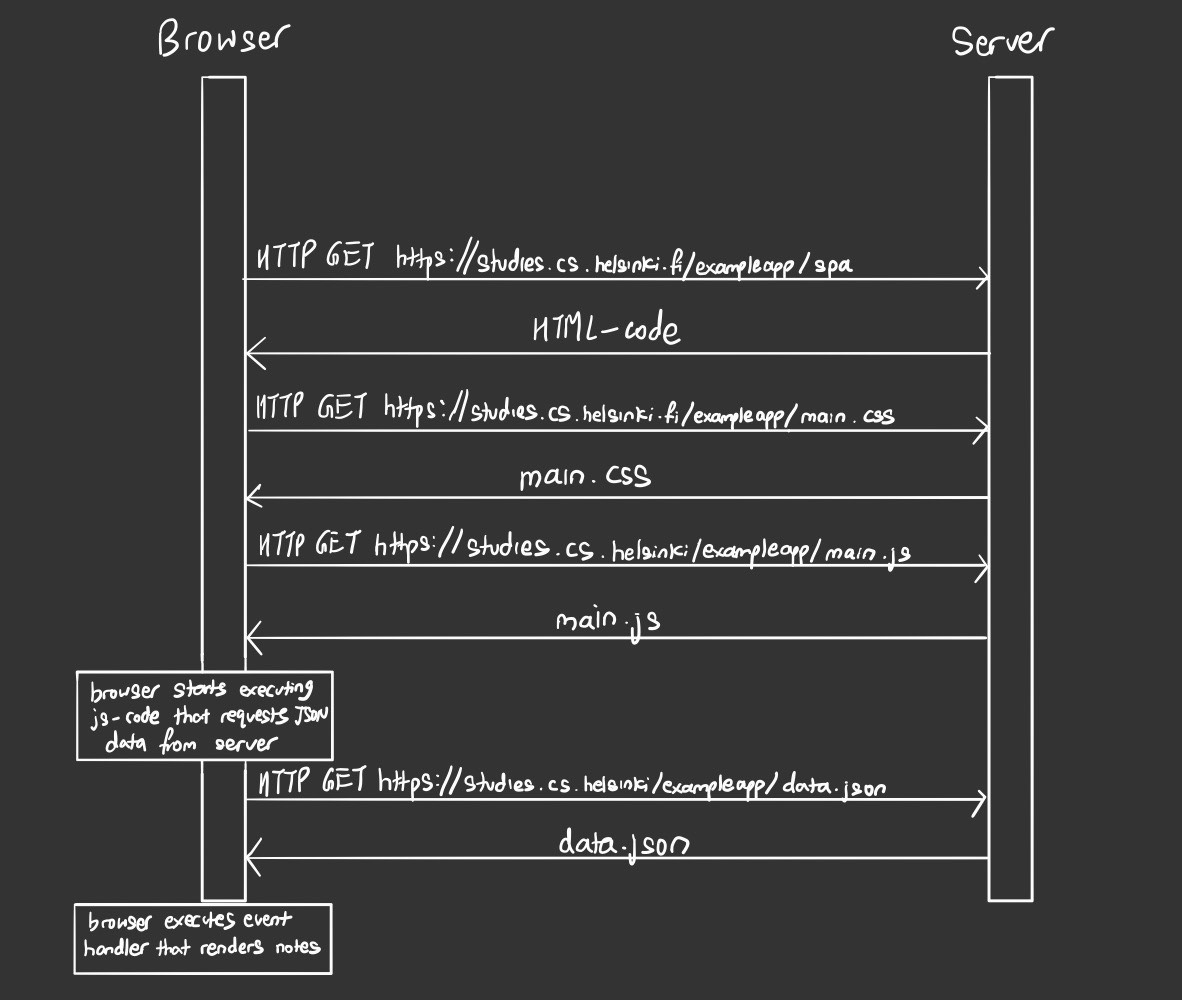 Browser
Server
HTTP GET https://studies.cs.helsinki.fi/exampleapp/spa
HTML-code
HTTP GET https://studies.cs.helsinki.fi/exampleapp/main.css
main.css
HTTP GET https://studies.cs.helsinki/exampleapp/main.js
main.js
browser starts executing
js-code that requests JSON
data from server
HTTP GET https://studies.cs.helsinki/exampleapp/data.json
data.json
browser executes event
handler that renders notes